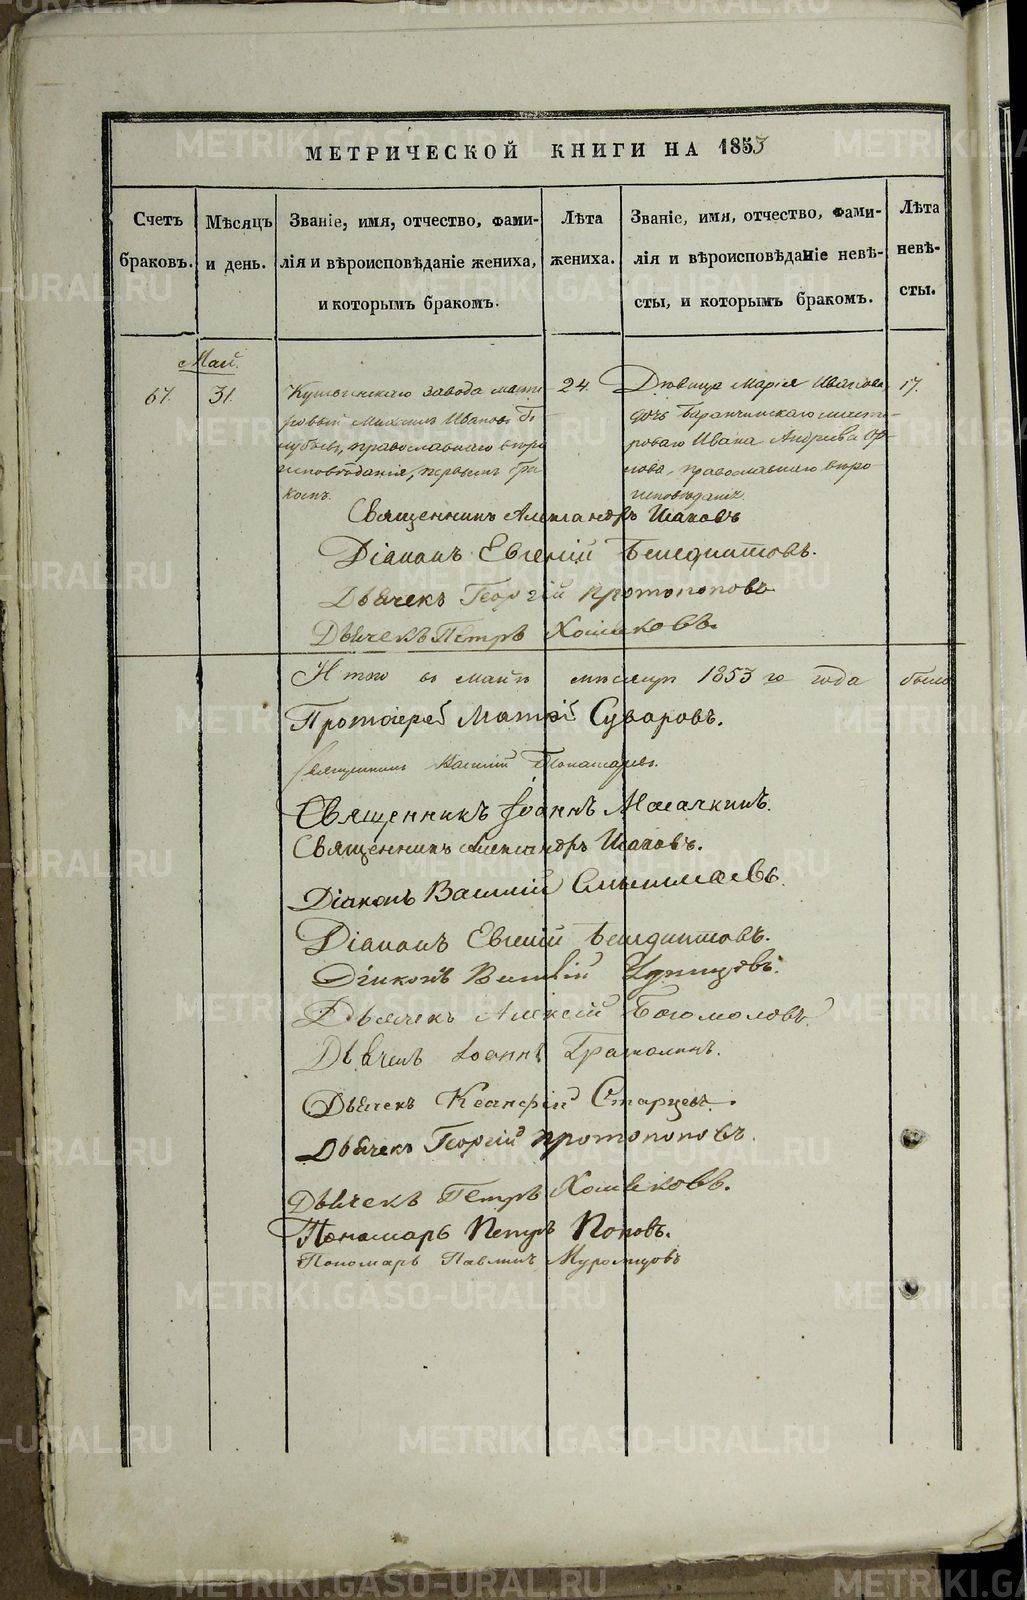 МЕТРИЧЕСКОЙ КНИГИ НА 1853
Счетъ браковъ.
Мѣсяцъ и день.
Званіе, имя, отчество, фами-
лія и вѣроисповѣданіе жениха,
и которымъ бракомъ.
Лѣта
жениха.
Званіе, имя, отчество, фами-
лія и вѣроисповѣданіе невѣ-
сты, и которымъ бракомъ.
Лѣта
невѣ-
сты.
Май.
67.
31.
Кушвинскаго завода масте
ровый Михаилъ Ивановъ Го
лубевъ, православнаго вѣро
исповѣданія, первымъ бра
комъ.
24.
Дѣвица Марія Иванова,
дочь Баранчинскаго масте-
роваго Ивана Андреева Ор
лова, православнаго вѣро
исповѣданія.
17.
Священникъ Александръ Исаковъ
Діаконъ Евгеній Бенедиктовъ.
Дьячекъ Георгій Протопоповъ
Дьячекъ Петръ Хомяковъ.
Итого въ Маѣ мѣсяцѣ 1853 го года было
Протоіерей Матѳій Суворовъ.
Священникъ Василій Пономаревъ.
Священникъ Іоаннъ
Священникъ Александръ Исаковъ.
Діаконъ Василій Смышляевъ.
Діаконъ Евгеній Бенедиктовъ.
Діаконъ Василій
Дьячекъ Алексій Богомоловъ.
Дьячекъ Іоаннъ
Дьячекъ Ксанфій Старцевъ.
Дьячекъ Георгій Протопоповъ.
Дьячекъ Петръ Хомяковъ.
Пономарь Петръ Поповъ.
Пономарь Павлинъ Муромцовъ
METRIKI.GASO-URAL.RU